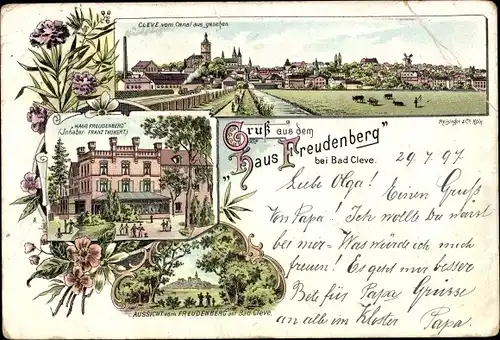 CLEVE vom Canal aus gesehen.
Reisinger & Co. Köln
„HAUS FREUDENBERG“
(Inhaber: FRANZ THINERT.)
Gruß aus dem
„Haus Freudenberg“
bei Bad Cleve.
29.7.97
Liebe Olga! Einen Gruß
von Papa! Ich wollte Du wärst
bei mir – Was würde ich mich
freuen! Es geht mir besser
Bete für Papa Grüsse
an alle im Kloster Papa.
AUSSICHT vom FREUDENBERG auf Bad Cleve.